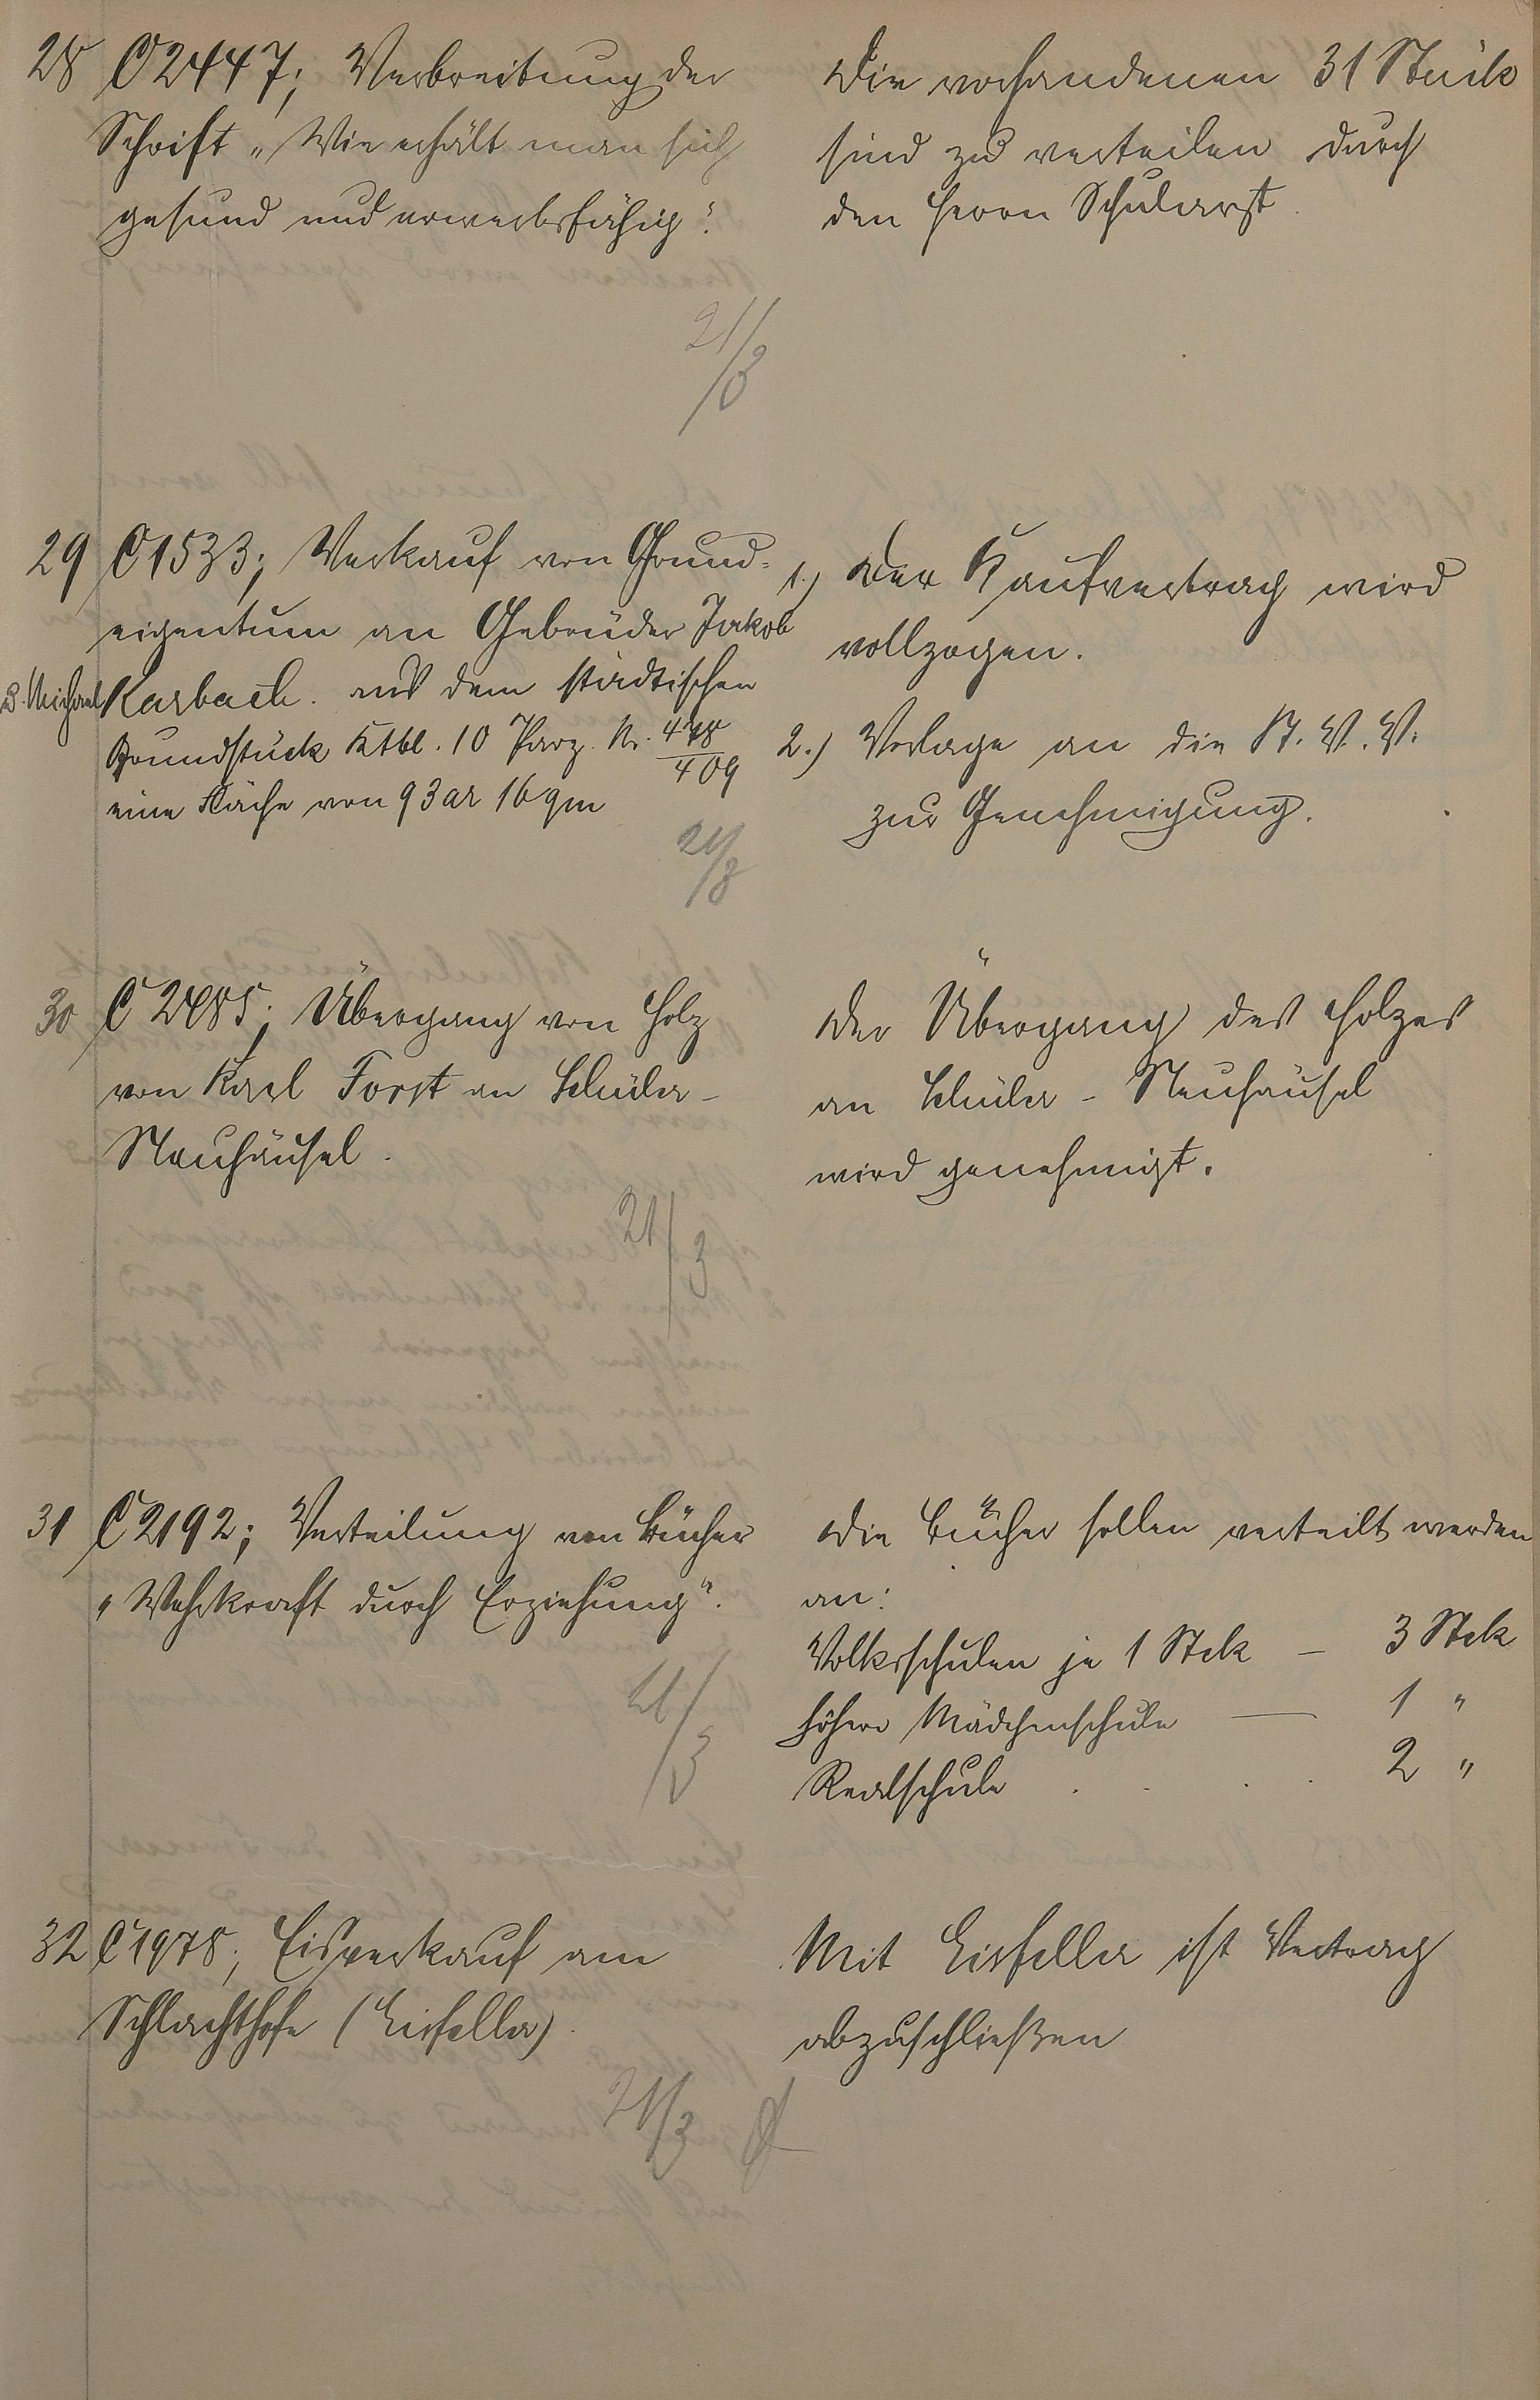 28 C 2447; Verbreitung der
Schrift „Wie erhält man sich
gesund und erwerbsfähig“.
21/3
Die vorhandenen 31 Stück
sind zu verteilen durch
den Herrn Schularzt
29 C 1533; Verkauf von Grund-
eigentum an Gebrüder Jakob
& Michael Karbach. aus dem städtischen
Grundstück Ktbl. 10 Parz. Nr. 478/409
eine Fläche von 93 ar 16 qm
21/3
1.) Der Kaufvertrag wird
vollzogen.
2.) Vorlage an die St. V. V.
zur Genehmigung.
30 C 2485; Übergang von Holz
von Karl Forst an Schüler-
Neuhäusel.
21/3
Der Übergang des Holzes
an Schüler - Neuhäusel
wird genehmigt.
31 C 2192; Verteilung von Bücher
„Wehrkraft durch Erziehung“.
21/3
Die Bücher sollen verteilt werden
an:
Volksschulen je 1 Stck — 3 Stck
höhere Mädchenschule — 1 "
Realschule . . . . 2 "
32 C 1978; Eisverkauf am
Schlachthofe (Eisfeller)
21/3
Mit Eisfeller ist Vertrag
abzuschließen